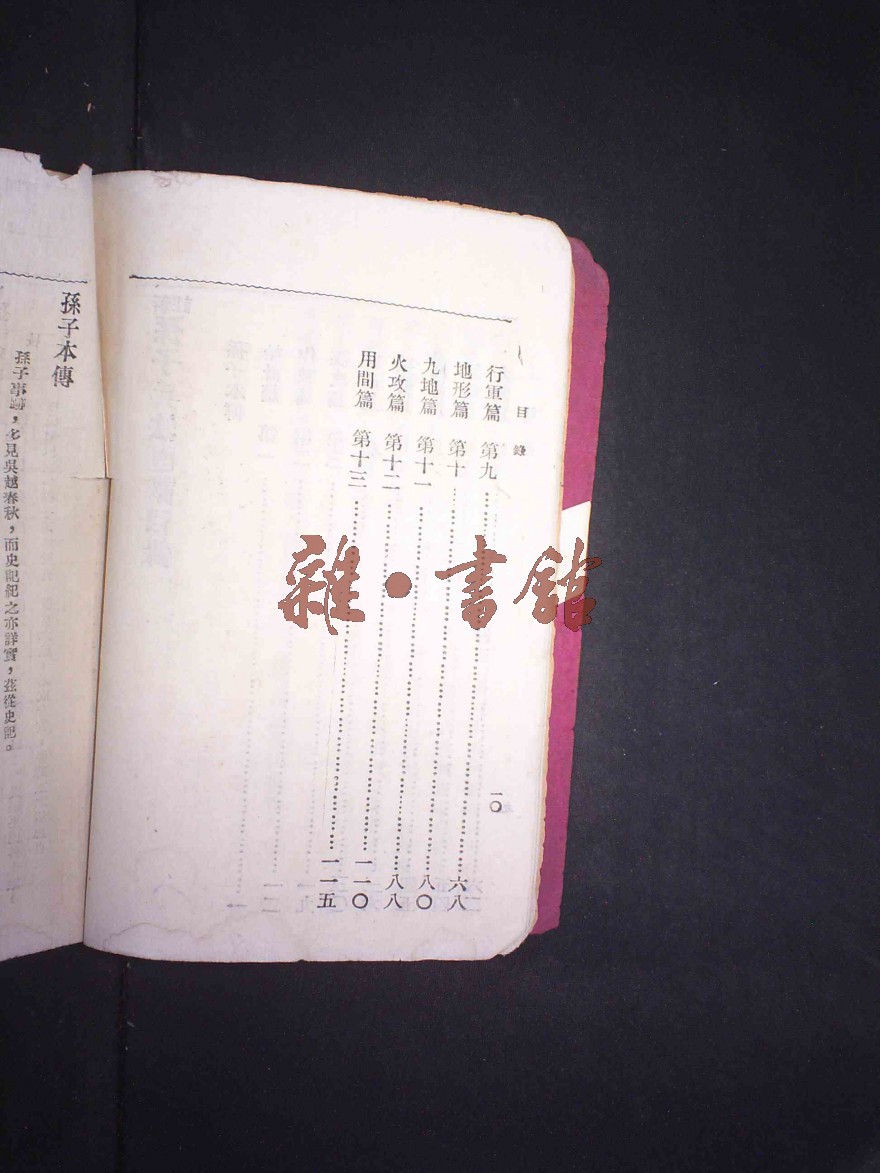 目錄
一〇
行軍篇 第九……六八
地形篇 第十……八〇
九地篇 第十一……八八
火攻篇 第十二……一一〇
用間篇 第十三……一一五
孫子本傳
孫子事蹟，多見吳越春秋，而史記紀之亦詳實，茲從史記。
雜·書館